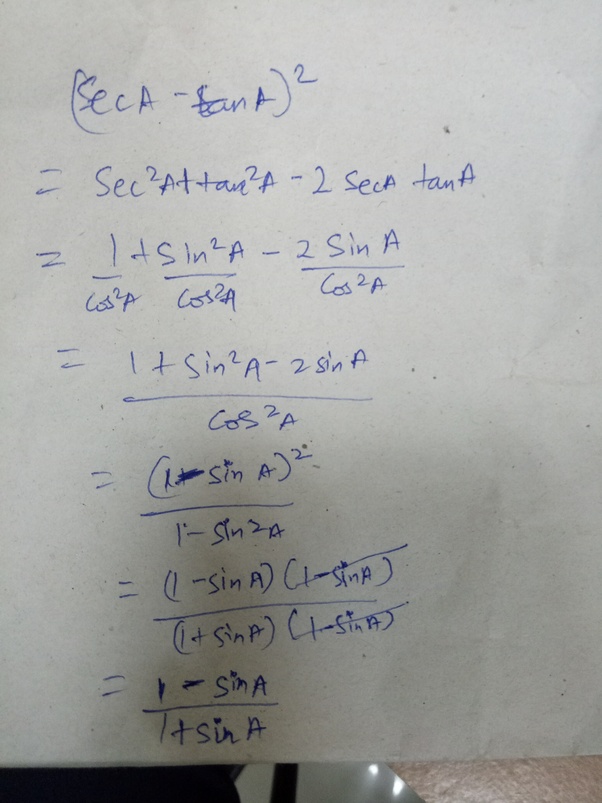 (SecA - tanA)²
= Sec²A + tan²A - 2 SecA tanA
= 1/Cos²A + Sin²A/Cos²A - 2 Sin A/Cos²A
= (1 + Sin²A - 2 sin A)/Cos²A
= (1 - sin A)²/(1 - Sin²A)
= (1 - sin A) (1 - sin A)/(1 + sin A) (1 - sin A)
= (1 - sin A)/(1 + sin A)